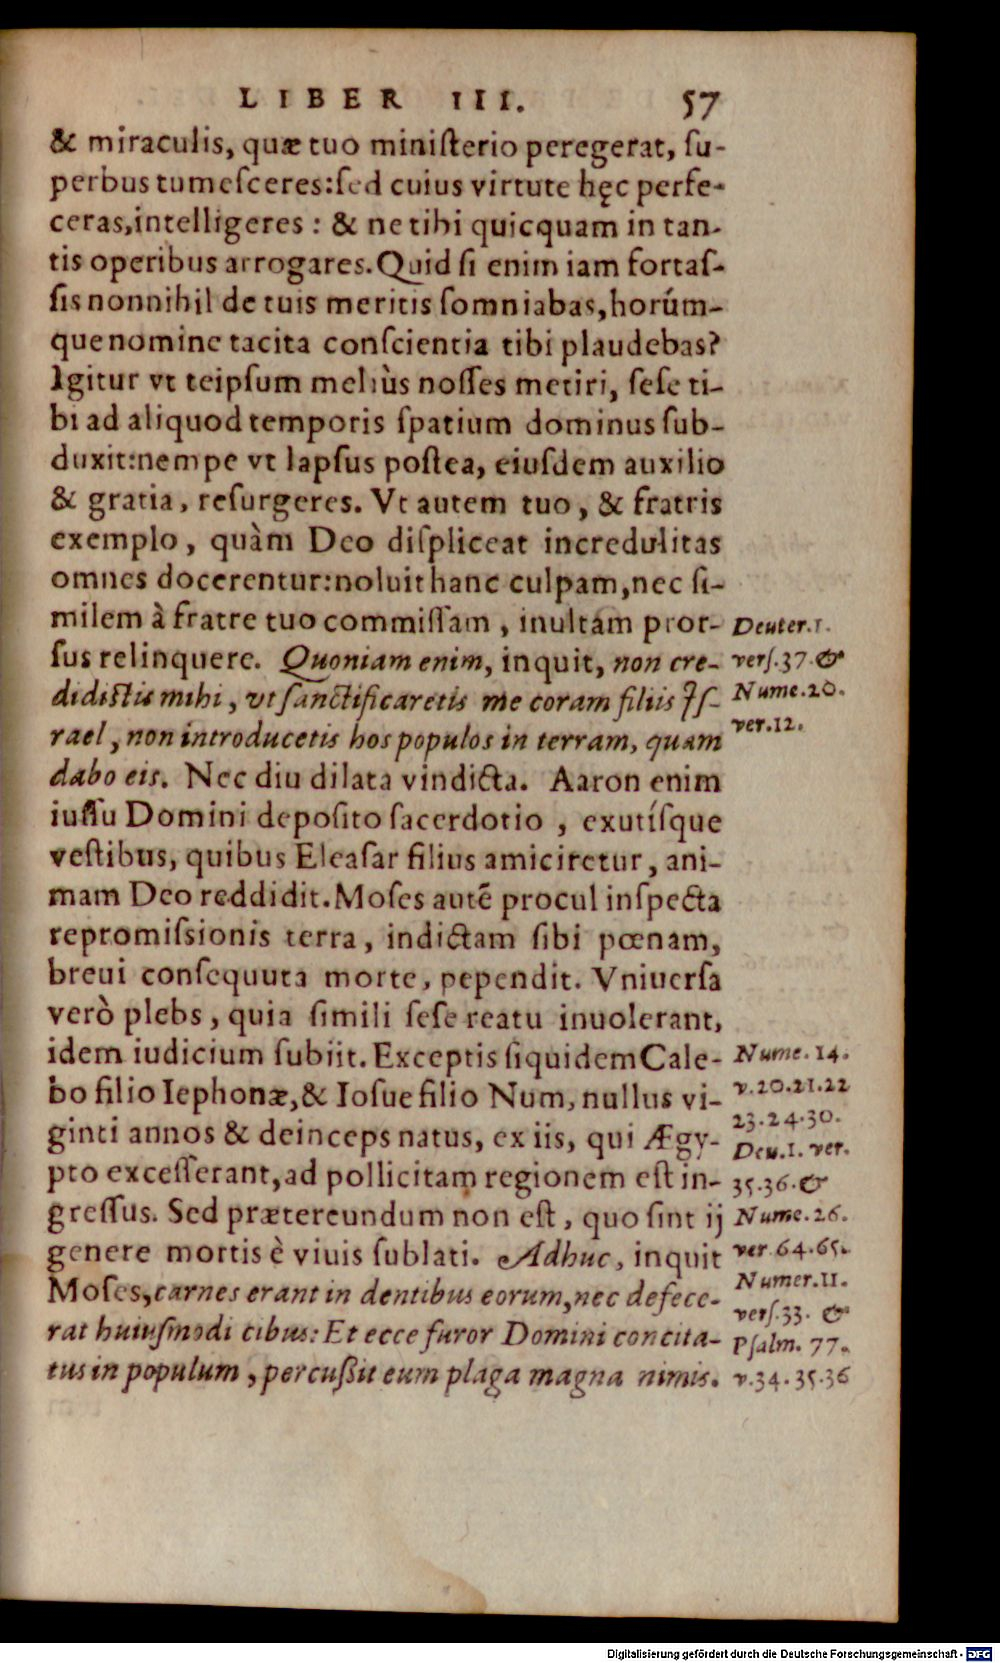 LIBER III. 57
& miraculis, quæ tuo miniſterio peregerat, ſu-
perbus tumeſceres: ſed cuius virtute hęc perfe-
ceras, intelligeres : & ne tibi quicquam in tan-
tis operibus arrogares. Quid ſi enim iam fortaſ-
ſis nonnihil de tuis meritis ſomniabas, horúm-
que nomine tacita conſcientia tibi plaudebas?
Igitur vt teipſum meliùs noſſes metiri, ſeſe ti-
bi ad aliquod temporis ſpatium dominus ſub-
duxit: nempe vt lapſus poſtea, eiuſdem auxilio
& gratia, reſurgeres. Vt autem tuo, & fratris
exemplo, quàm Deo diſpliceat incredulitas
omnes docerentur: noluit hanc culpam, nec ſi-
milem à fratre tuo commiſſam, inultam pror-
ſus relinquere. Quoniam enim, inquit, non cre-
didiſtis mihi, vt ſanctificaretis me coram filiis Iſ-
rael, non introducetis hos populos in terram, quam
dabo eis. Nec diu dilata vindicta. Aaron enim
iuſſu Domini depoſito ſacerdotio, exutíſque
veſtibus, quibus Eleaſar filius amiciretur, ani-
mam Deo reddidit. Moſes autē procul inſpecta
repromiſsionis terra, indictam ſibi pœnam,
breui conſequuta morte, pependit. Vniuerſa
verò plebs, quia ſimili ſeſe reatu inuolerant,
idem iudicium ſubiit. Exceptis ſiquidem Cale-
bo filio Iephonæ, & Ioſue filio Num, nullus vi-
ginti annos & deinceps natus, ex iis, qui Ægy-
pto exceſſerant, ad pollicitam regionem eſt in-
greſſus. Sed prætereundum non eſt, quo ſint ij
genere mortis è viuis ſublati. Adhuc, inquit
Moſes, carnes erant in dentibus eorum, nec defece-
rat huiuſmodi cibus: Et ecce furor Domini concita-
tus in populum, percuſsit eum plaga magna nimis.
Deuter.1.
verſ.37.&
Nume.20.
ver.12.
Nume.14.
v.20.21.22
23.24.30.
Deu.1. ver.
35.36.&
Nume.26.
ver 64.65.
Numer.11.
verſ.33. &
Pſalm. 77.
v.34.35.36
Digitalisierung gefördert durch die Deutsche Forschungsgemeinschaft - DFG